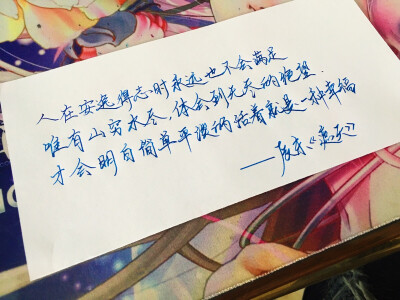 人在安逸得志时永远也不会满足
唯有山穷水尽,体会到无尽的绝望
才会明白简单平淡的活着就是一种幸福
——